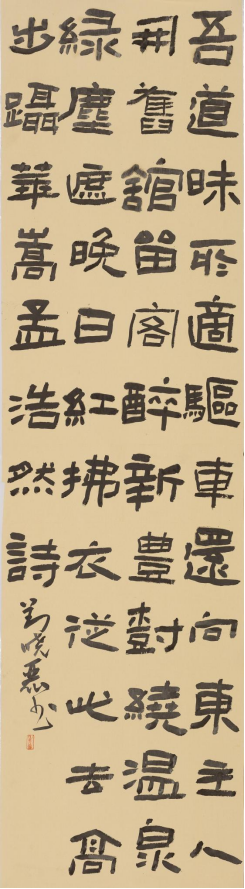 吾道昧所適驅車還向東主人
開舊館留客醉新豊樹繞温泉
緑塵遮晚日紅拂衣從此去高
步躡華嵩孟浩然詩